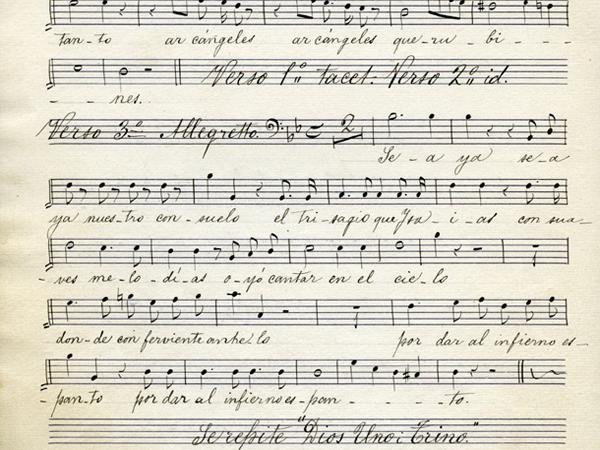 tan-to arcángeles arcángeles que-ru-bi---
- - nes. Verso 1º tacet. Verso 2º id.
Verso 3º Allegretto. 2
Se-a ya se-a
ya nues-tro con-suelo el tri-sagio que Ysa-i-as con sua-
-ves me-lo-dí-as o-yó cantar en el cie-lo
don-de con ferviente anhelo por dar al infierno es-
-pan-to por dar al infierno es-pan----to.
Se repite "Dios Uno i Trino."